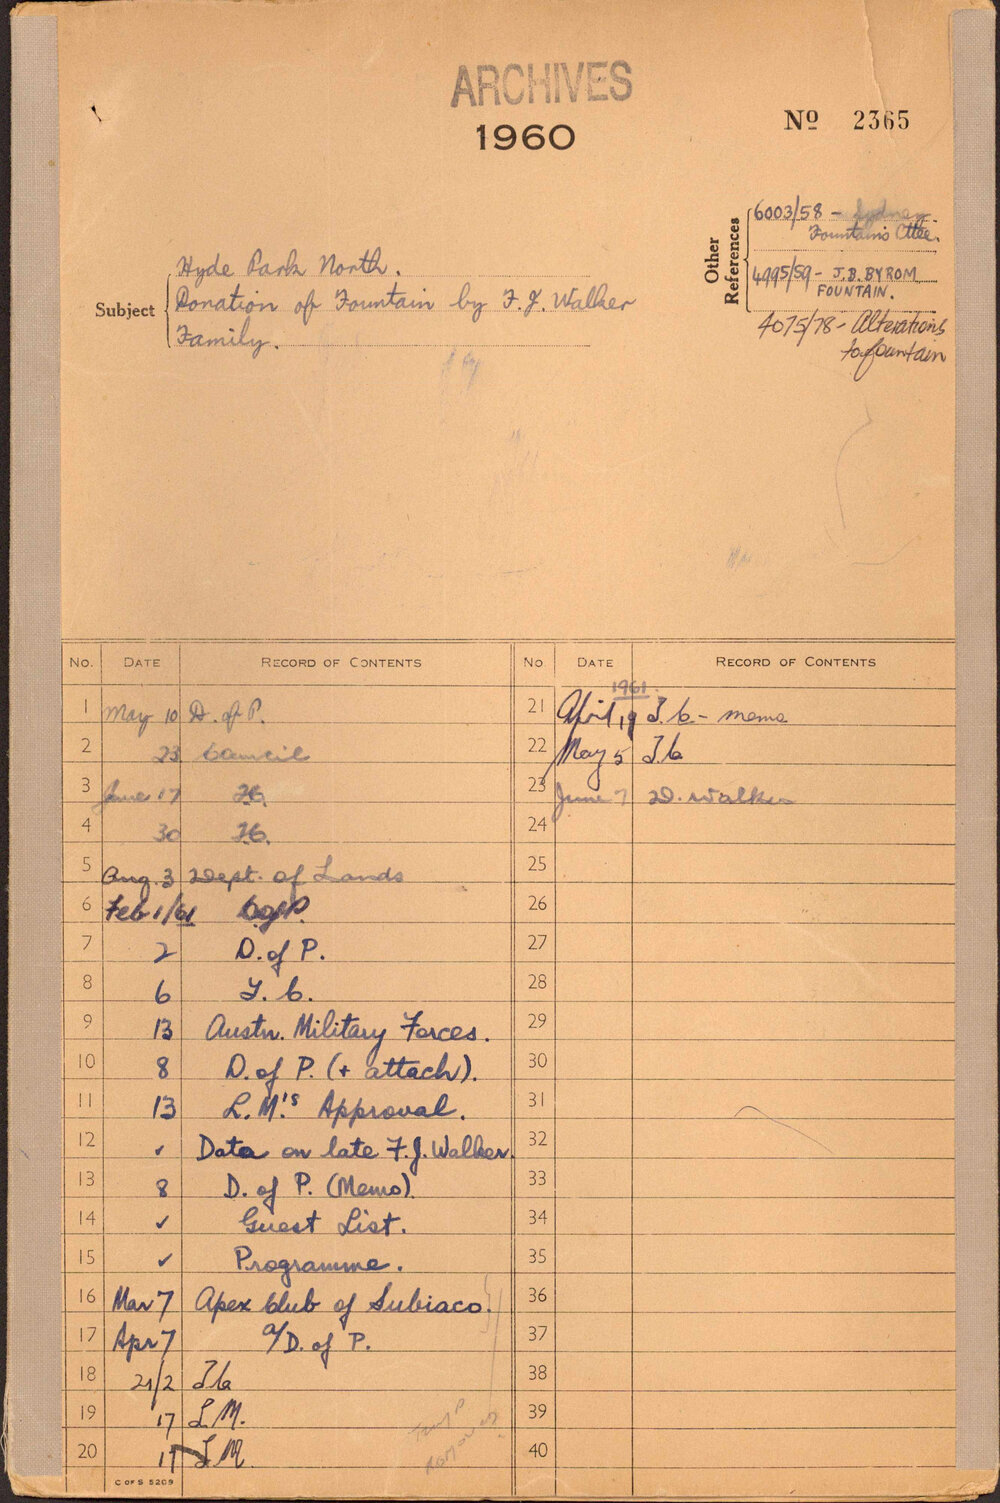 ARCHIVES
1960
Nº 2365
Other References
6003/58 - Sydney
Fountains Cttee.
4995/59 - J.B. BYROM
FOUNTAIN.
4075/78 - Alterations
to fountain
Subject
Hyde Park North.
Donation of Fountain by F.J. Walker
Family.
No. DATE RECORD OF CONTENTS
1 May 10 D. of P.
2 23 Council
3 June 17 T.C.
4 30 T.C.
5 Aug. 3 Dept. of Lands
6 Feb 1/61
7 2 D. of P.
8 6 T. C.
9 13 Austn. Military Forces.
10 8 D. of P. (+ attach).
11 13 L.M.'s Approval.
12 ✓ Data on late F.J. Walker.
13 8 D. of P. (Memo)
14 ✓ Guest List.
15 ✓ Programme.
16 Mar 7 Apex Club of Subiaco.
17 Apr 7 a/D. of P.
18 21/2 T.C
19 17 L.M.
20 17 L.M.
C OF S 5209
No DATE RECORD OF CONTENTS
1961.
21 April 19 T.C - memo
22 May 5 T.C
23 June 7 D. Walker
24
25
26
27
28
29
30
31
32
33
34
35
36
37
38
39
40